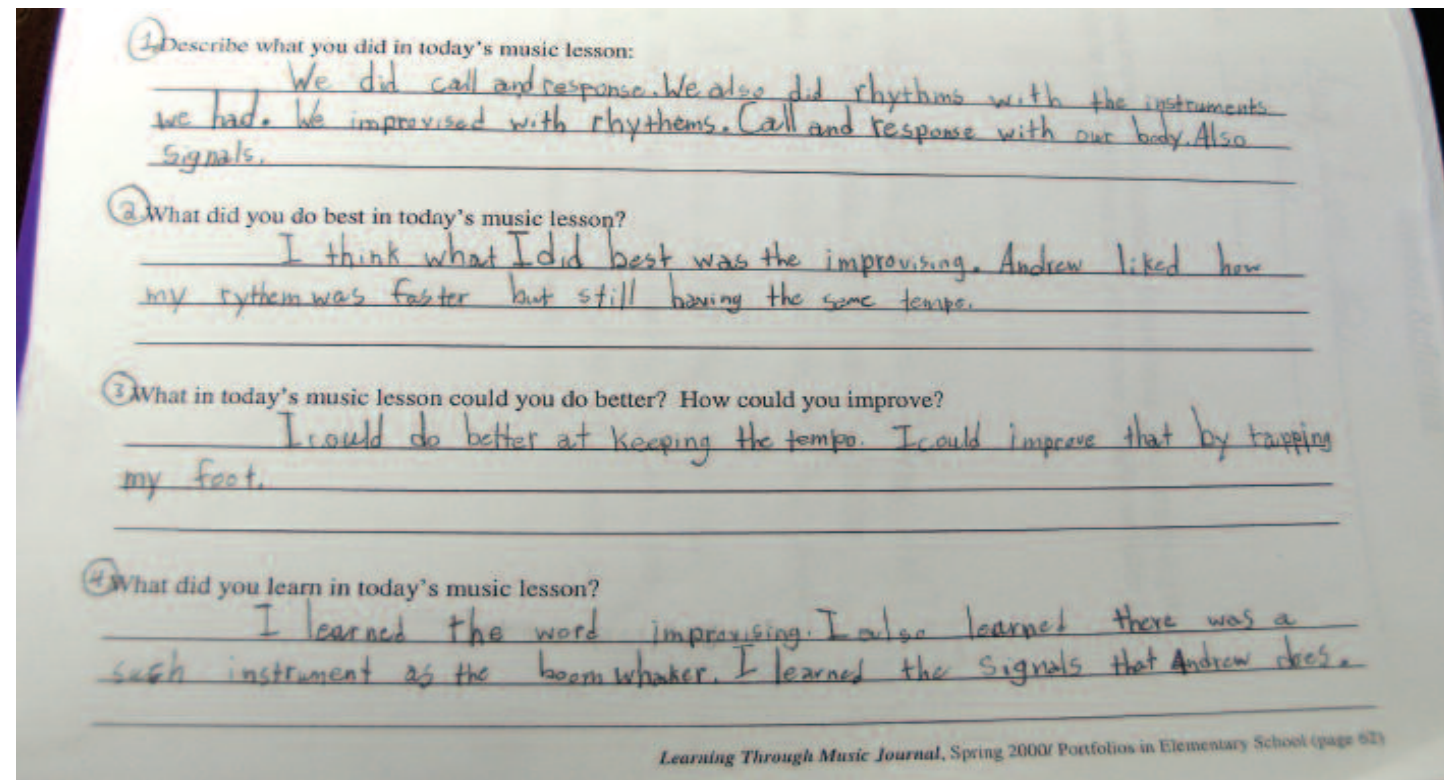 1. Describe what you did in today's music lesson:
We did call and response. We also did rhythms with the instruments
we had. We improvised with rhythems. Call and response with our body. Also
Signals.
2 What did you do best in today's music lesson?
I think what I did best was the improvising. Andrew liked how
my rythem was faster but still having the same tempo.
3 What in today's music lesson could you do better? How could you improve?
I could do better at keeping the tempo. I could improve that by tapping
my foot.
4 What did you learn in today's music lesson?
I learned the word improvising. I also learned there was a
such instrument as the boom whaker. I learned the signals that Andrew does.
Learning Through Music Journal, Spring 2000/ Portfolios in Elementary School (page 62)